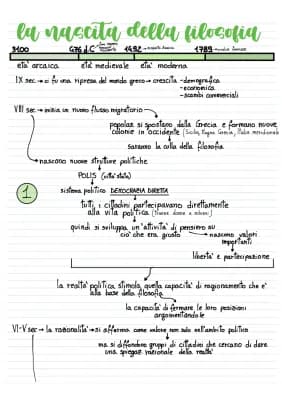 la nascita della filosofia
3100 476 d.C 1492 → scoperta America 1789 →
età arcaica età medievale età moderna
IX sec → ci fu una ripresa del mondo greco → crescita - demografica
- economica
- scambi commerciali
VIII sec → inizia un nuovo flusso migratorio
popolaz. si spostano dalla Grecia e formano nuove
colonie in occidente (Sicilia, Magna Grecia, Italia meridionale)
saranno la culla della filosofia
nascono nuove strutture politiche
POLIS (città stato)
1
sistema politico DEMOCRAZIA DIRETTA
tutti i cittadini partecipavano direttamente
alla vita politica (tranne donne e schiavi)
quindi si sviluppa un'attività di pensiero su
ciò che era giusto → nascono valori
importanti
libertà e partecipazione
la realtà politica stimola quella capacità di ragionamento che è
alla base della filosofia
la capacità di fermare le loro posizioni
argomentandole
VI-V sec → la razionalità → si afferma come valore non solo nell'ambito politico
ma si diffondono gruppi di cittadini che cercano di dare
una spiegaz. razionale della realtà